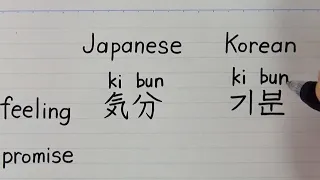 Japanese Korean
ki bun ki bun
feeling 気分 기분
promise